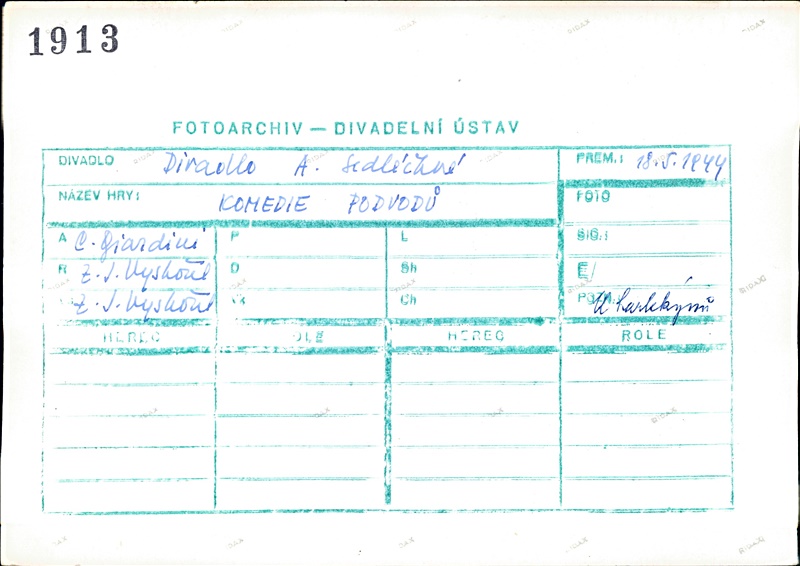 1913
FOTOARCHIV — DIVADELNÍ ÚSTAV
DIVADLO Divadlo A. Sedláčkové PREM.: 18.5.1944
NÁZEV HRY: KOMEDIE PODVODŮ FOTO
A C. Giardini P L SIG.:
R Z. J. Vyskočil D Sh E/
Z. J. Vyskočil Ch POZN.: U harlekýnů
HEREC ROLE HEREC ROLE